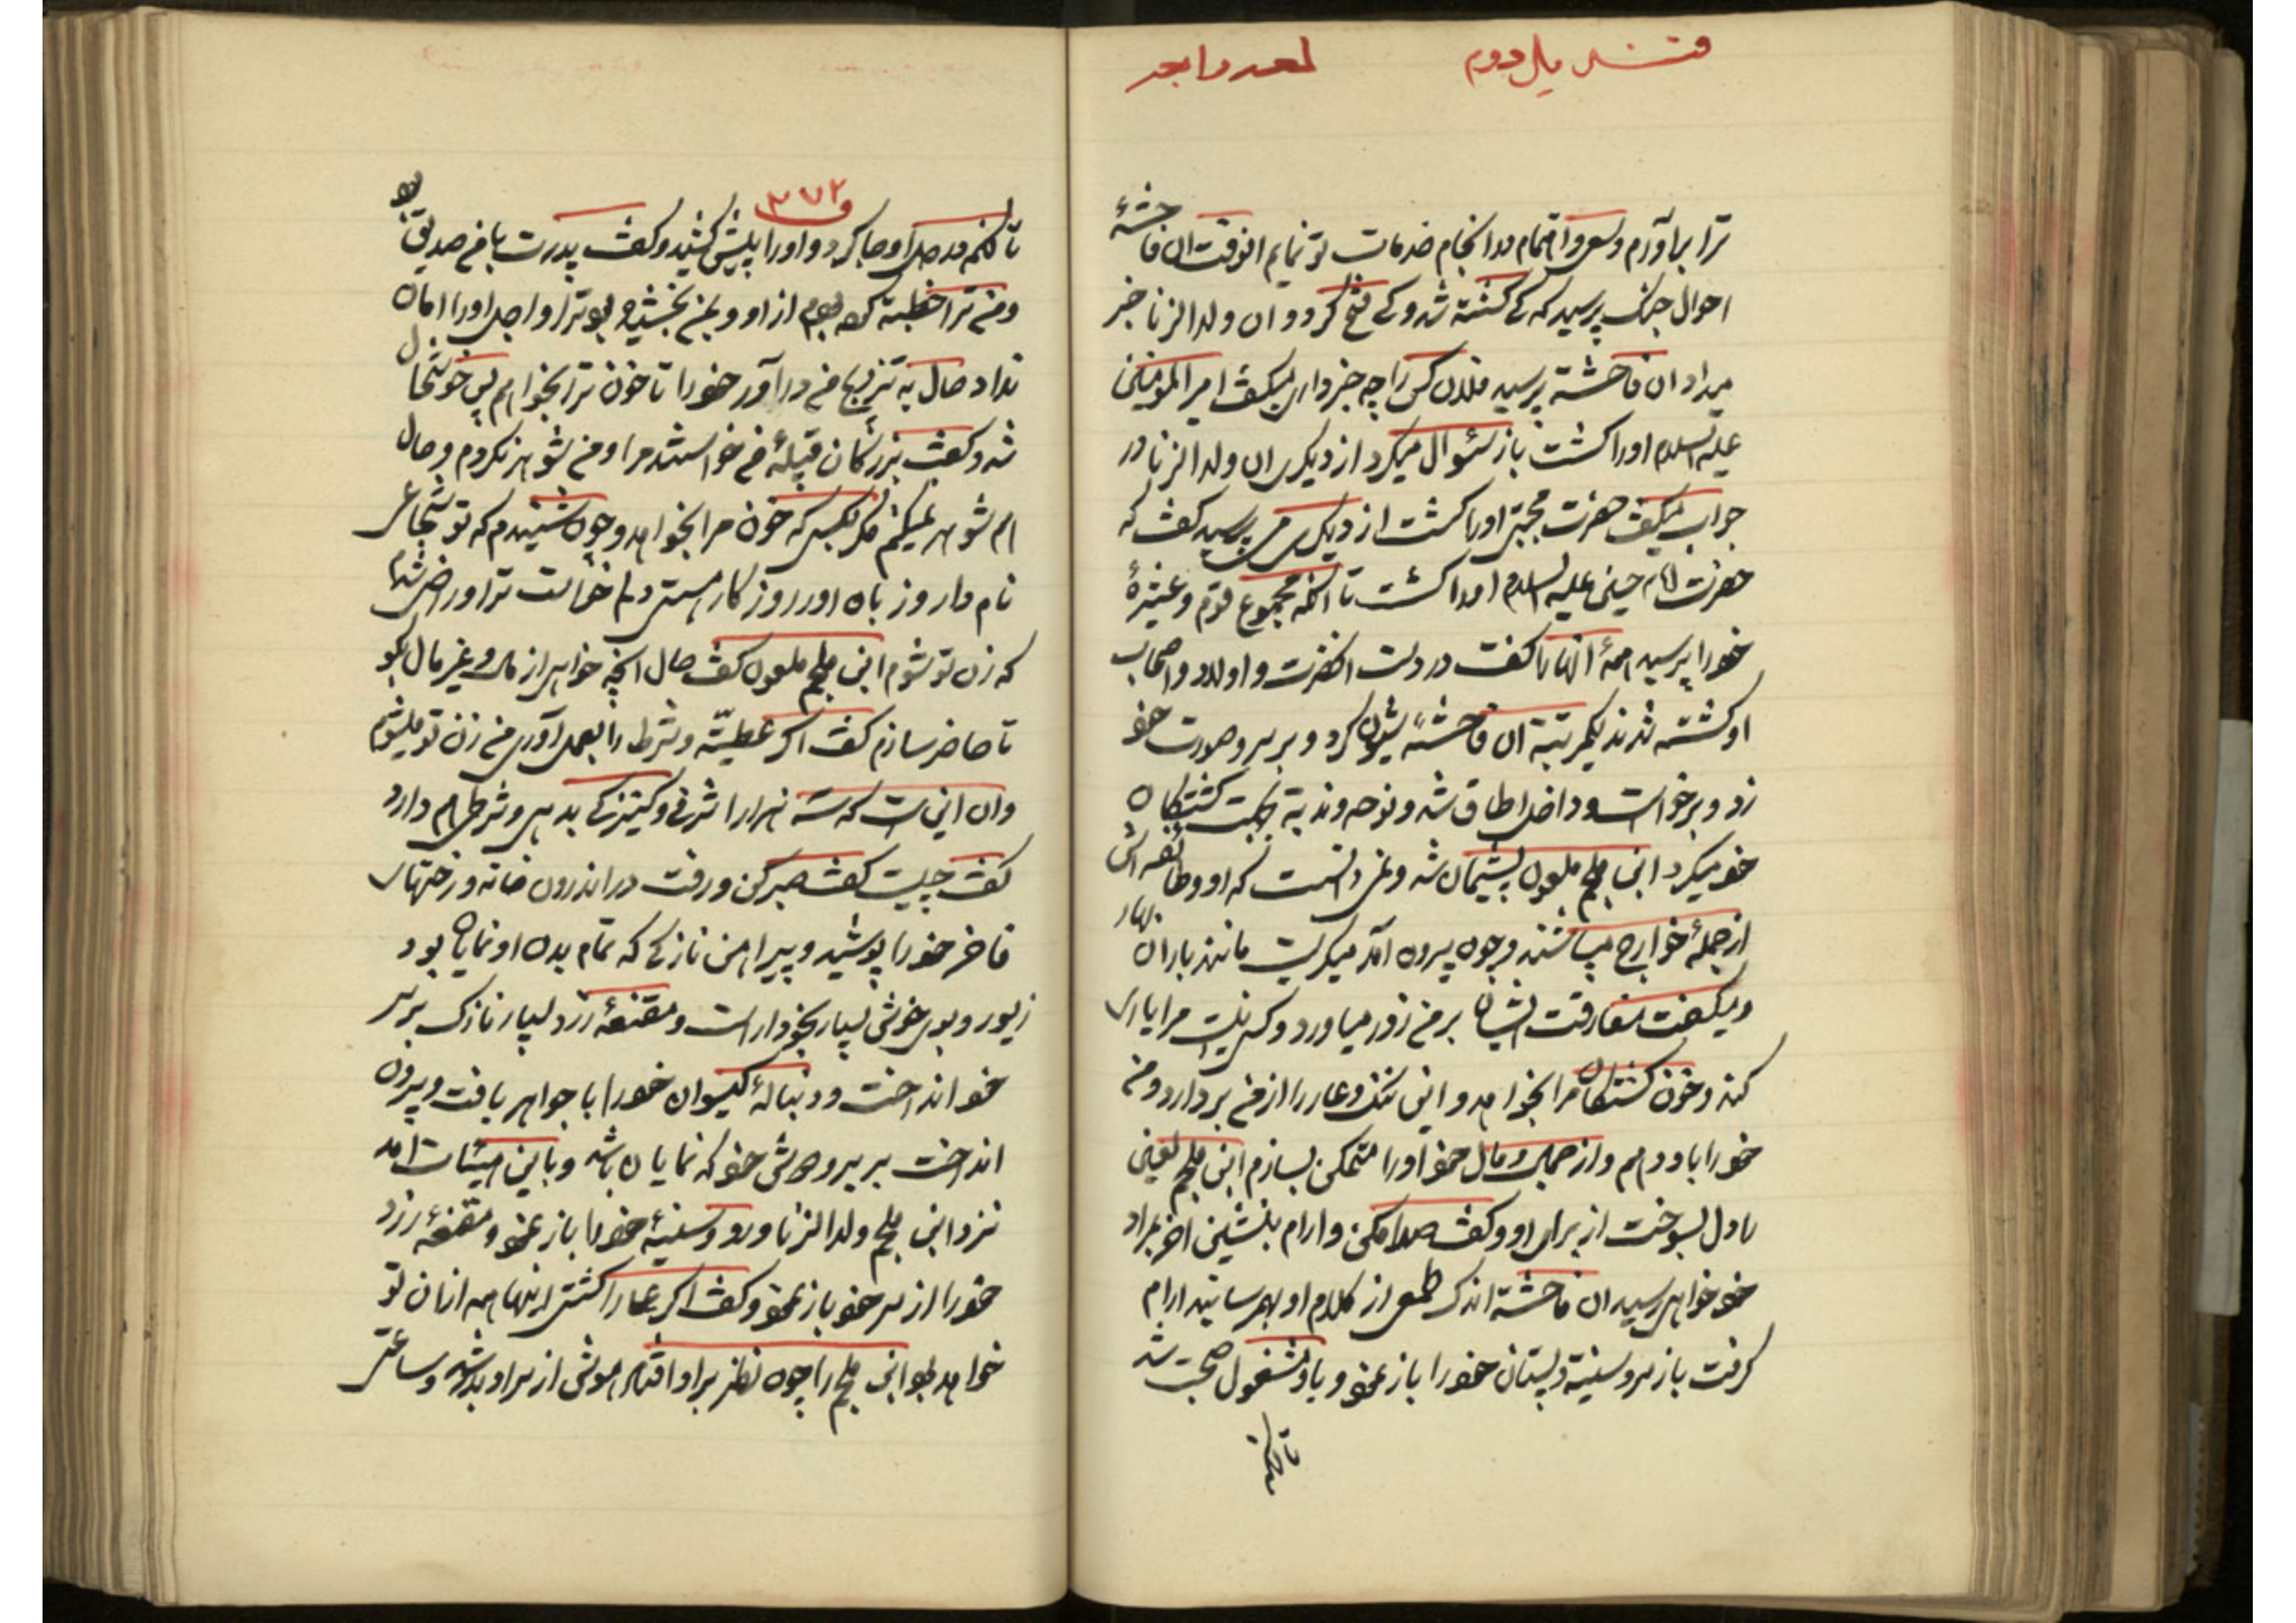 ترا براورم وسعی و اهتمام در انجام خدمات تو نمایم انوقت ان فاحشهٔ
احوال جنک پرسید که کے کشته شد و کے فتح کرد و ان ولد الزنا خبر
میداد ان فاحشه پرسید فلان کس را چه خبر داری میکفت امیر المومنین
علیه السلام اورا کشت باز سئوال میکرد از دیکری ان ولد الزنا در
جواب میکفت حضرت مجتبی اورا کشت از دیکری می پرسید کفت که
حضرت امام حسین علیه السلام اورا کشت تا انکه مجموع قوم و عشیرهٔ
خورا پرسید همهٔ انها را کفت در دست انحضرت و اولاد و اصحاب
او کشته شدند یکمرتبة ان فاحشهٔ شیون کرد و بر سر و صورت خو
زد و برخواست و داخل اطاق شد و نوحه و ندبة بجهت کشتکان
خو میکرد ابن ملجم ملعون پشیمان شد و نمی دانست که او و طائفه اش
از جملهٔ خوارج میباشند و چون بیرون آمد میکریست مانند باران بهار
و میکفت مفارقت ایشان بر من زور میاورد و کسی نیست مرا یاری
کند و خون کشتکان مرا بخواهد و این ننک و عار را از من بردارد و من
خورا باو دهم و از جمال و مال خو اورا متمکن بسازم ابن ملجم لعین
را دل بسوخت از برای او و کفت صدا مکن و ارام بنشین اخر بمراد
خو خواهی رسید ان فاحشة اندک طمعی از کلام او بهم رسانید ارام
کرفت باز سر و سینة و پستان خورا باز نمو و باو مشغول صحبت شد
۳۷۲
تا کنم در صل او جا کرد و اورا پیش کشید و کفت پدرت با من صدیق بو
و من ترا خطبته کرده بودم از او و بمن بخشیده بود ترا و اجل اورا امان
نداد حال به تزویج من در آور خورا تا خون ترا بخواهم پس خوشحال
شد و کفت بزرکان قبیلهٔ من خواستند مرا و من شوهر نکردم و حال
هم شوهر نمیکنم مکر بکسی که خون مرا بخواهد و چون شنیدم که تو شجاعی
نام دار و زباه اور روزکار هستی دلم خواست ترا و راضی شدم
که زن تو شوم ابن ملجم ملعون کفت حال انچه خواهی از مال و غیر مال بکو
تا حاضر سازم کفت اکر عطیّه و شرط را بعمل آوری من زن تو میشوم
و ان این است که سه هزار اشرفی و کنیزکے بدهی و شرطی هم دارد
کفت چیست کفت صبر کن و رفت در اندرون خانه و رختهای
فاخر خورا پوشید و پیراهن نازکے که تمام بدن او نمایان بود
زیور و بوی خوش بسیار بخود اراست و مقنعهٔ زرد بسیار نازک بر سر
خو انداخت و دنبالهٔ کیسوان خورا با جواهر بافت و بیرون
انداخت بر سر و دوش خو که نمایان باشد و باین هیئات امد
نزد ابن ملجم ولد الزنا و رو و سینهٔ خورا باز نمو و مقنعهٔ زرد
خورا از سر خو باز نمو و کفت اکر عمار را کشتی اینها همه ازان تو
خواهد بو ابن ملجم را چون نظر براو افتاد هوش از سر او بدر شد و ساعتی